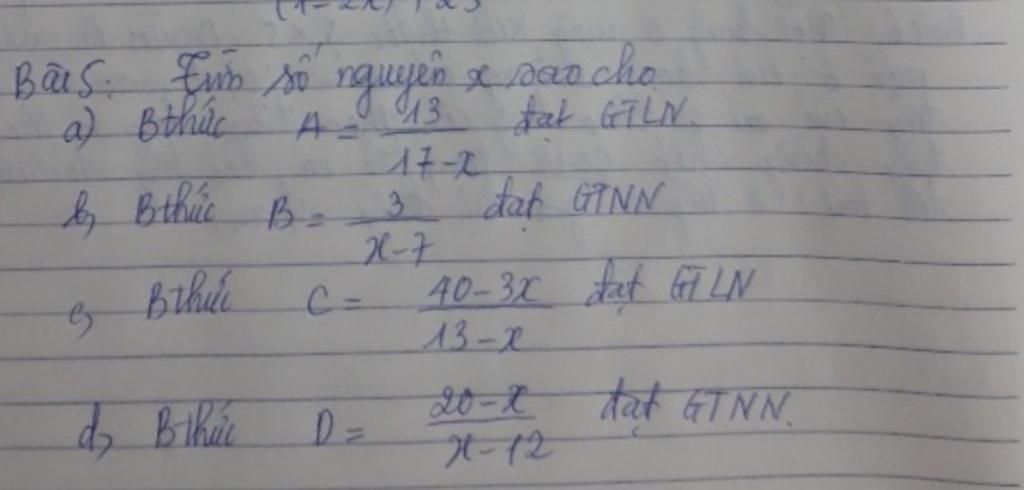 Bài 5: Tìm số nguyên x sao cho
a) Bthức A = 13/17-x đạt GTLN.
b, Bthức B = 3/x-7 đạt GTNN
c, Bthức C = 40-3x/13-x đạt GTLN
d, Bthức D = 20-x/x-12 đạt GTNN.